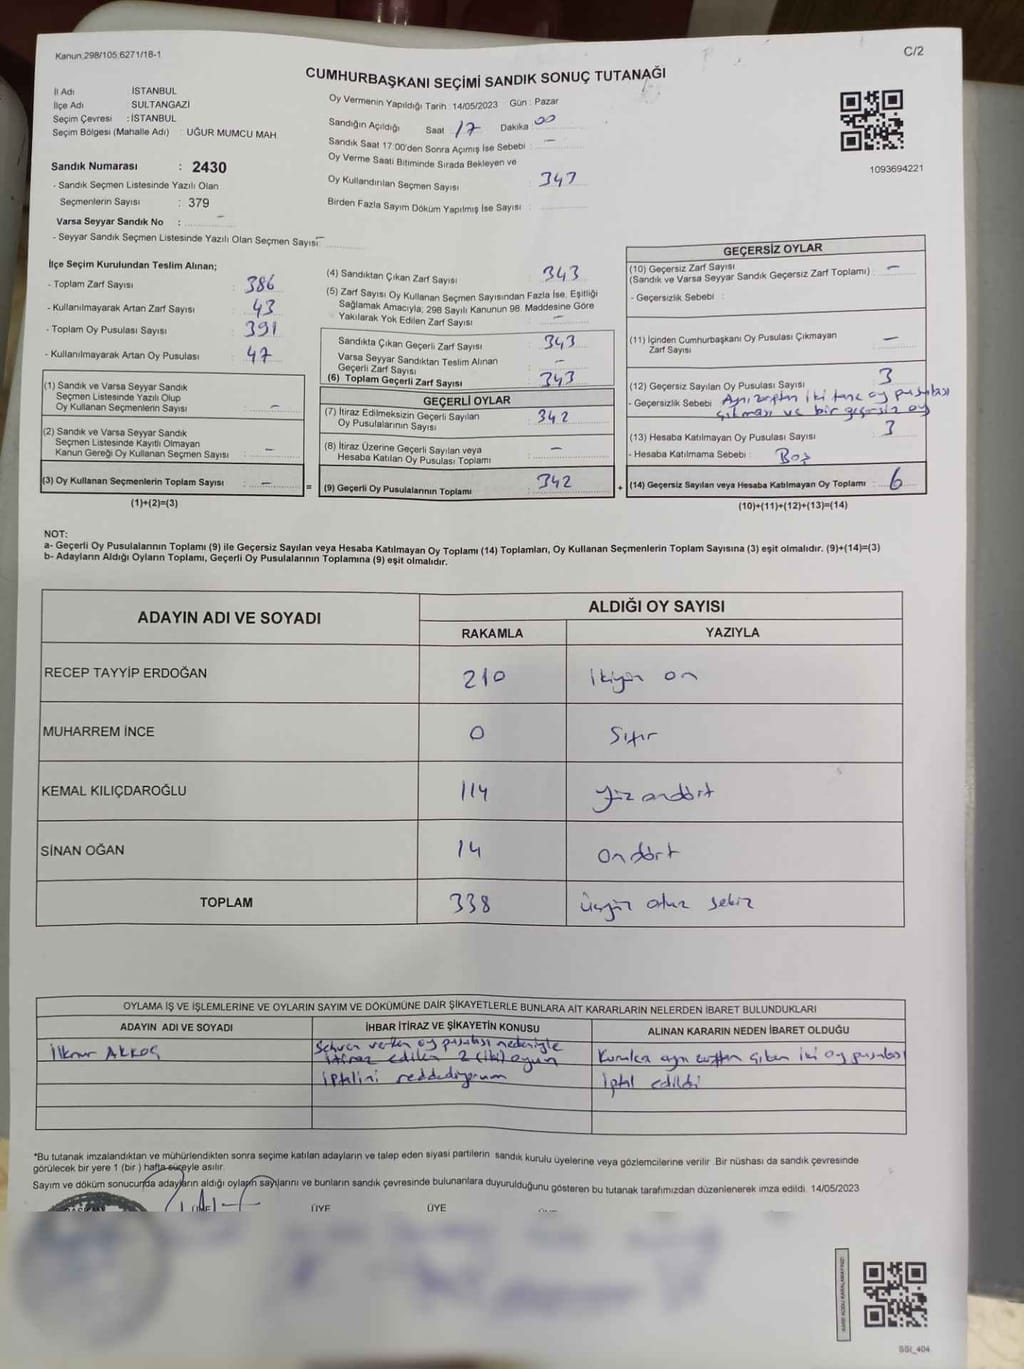 Kanun 298/105 6271/18-1
C/2
CUMHURBAŞKANI SEÇİMİ SANDIK SONUÇ TUTANAĞI
İl Adı İSTANBUL
İlçe Adı SULTANGAZİ
Seçim Çevresi : İSTANBUL
Seçim Bölgesi (Mahalle Adı) : UĞUR MUMCU MAH.
Sandık Numarası : 2430
- Sandık Seçmen Listesinde Yazılı Olan
Seçmenlerin Sayısı : 379
Varsa Seyyar Sandık No : -
- Seyyar Sandık Seçmen Listesinde Yazılı Olan Seçmen Sayısı: -
Oy Vermenin Yapıldığı Tarih : 14/05/2023 Gün : Pazar
Sandığın Açıldığı Saat 17 Dakika 00
Sandık Saat 17:00'den Sonra Açılmış İse Sebebi : -
Oy Verme Saati Bitiminde Sırada Bekleyen ve
Oy Kullandırılan Seçmen Sayısı : 343
Birden Fazla Sayım Döküm Yapılmış İse Sayısı :
1093694221
İlçe Seçim Kurulundan Teslim Alınan;
- Toplam Zarf Sayısı : 386
- Kullanılmayarak Artan Zarf Sayısı : 43
- Toplam Oy Pusulası Sayısı : 391
- Kullanılmayarak Artan Oy Pusulası : 47
(1) Sandık ve Varsa Seyyar Sandık
Seçmen Listesinde Yazılı Olup
Oy Kullanan Seçmenlerin Sayısı : -
(2) Sandık ve Varsa Seyyar Sandık
Seçmen Listesinde Kayıtlı Olmayan
Kanun Gereği Oy Kullanan Seçmen Sayısı : -
(3) Oy Kullanan Seçmenlerin Toplam Sayısı : - =
(1)+(2)=(3)
(4) Sandıktan Çıkan Zarf Sayısı : 343
(5) Zarf Sayısı Oy Kullanan Seçmen Sayısından Fazla İse, Eşitliği
Sağlamak Amacıyla, 298 Sayılı Kanunun 98. Maddesine Göre
Yakılarak Yok Edilen Zarf Sayısı : -
Sandıkta Çıkan Geçerli Zarf Sayısı : 343
Varsa Seyyar Sandıktan Teslim Alınan
Geçerli Zarf Sayısı : -
(6) Toplam Geçerli Zarf Sayısı : 343
GEÇERLİ OYLAR
(7) İtiraz Edilmeksizin Geçerli Sayılan
Oy Pusulalarının Sayısı : 342
(8) İtiraz Üzerine Geçerli Sayılan veya
Hesaba Katılan Oy Pusulası Toplamı : -
(9) Geçerli Oy Pusulalarının Toplamı : 342 +
GEÇERSİZ OYLAR
(10) Geçersiz Zarf Sayısı
(Sandık ve Varsa Seyyar Sandık Geçersiz Zarf Toplamı) : -
- Geçersizlik Sebebi :
(11) İçinden Cumhurbaşkanı Oy Pusulası Çıkmayan
Zarf Sayısı : -
(12) Geçersiz Sayılan Oy Pusulası Sayısı : 3
- Geçersizlik Sebebi : Aynı zarftan iki tane oy pusulası
çıkması ve bir geçersiz oy
(13) Hesaba Katılmayan Oy Pusulası Sayısı : 3
- Hesaba Katılmama Sebebi : Boş
(14) Geçersiz Sayılan veya Hesaba Katılmayan Oy Toplamı : 6
(10)+(11)+(12)+(13)=(14)
NOT:
a- Geçerli Oy Pusulalarının Toplamı (9) ile Geçersiz Sayılan veya Hesaba Katılmayan Oy Toplamı (14) Toplamları, Oy Kullanan Seçmenlerin Toplam Sayısına (3) eşit olmalıdır. (9)+(14)=(3)
b- Adayların Aldığı Oyların Toplamı, Geçerli Oy Pusulalarının Toplamına (9) eşit olmalıdır.
ADAYIN ADI VE SOYADI
ALDIĞI OY SAYISI
RAKAMLA YAZIYLA
RECEP TAYYİP ERDOĞAN 210 ikiyüz on
MUHARREM İNCE 0 Sıfır
KEMAL KILIÇDAROĞLU 114 yüz ondört
SİNAN OĞAN 14 on dört
TOPLAM 338 üçyüz otuz sekiz
OYLAMA İŞ VE İŞLEMLERİNE VE OYLARIN SAYIM VE DÖKÜMÜNE DAİR ŞİKAYETLERLE BUNLARA AİT KARARLARIN NELERDEN İBARET BULUNDUKLARI
ADAYIN ADI VE SOYADI İHBAR İTİRAZ VE ŞİKAYETİN KONUSU ALINAN KARARIN NEDEN İBARET OLDUĞU
İlknur AKKOÇ
Sehven verilen oy pusulası nedeniyle
itiraz edilen 2 (iki) oyun
iptalini reddediyorum
Kurulca aynı zarftan çıkan iki oy pusulası
iptal edildi
*Bu tutanak imzalandıktan ve mühürlendikten sonra seçime katılan adayların ve talep eden siyasi partilerin sandık kurulu üyelerine veya gözlemcilerine verilir. Bir nüshası da sandık çevresinde
görülecek bir yere 1 (bir) hafta süreyle asılır.
Sayım ve döküm sonucunda adayların aldığı oyların sayılarını ve bunların sandık çevresinde bulunanlara duyurulduğunu gösteren bu tutanak tarafımızdan düzenlenerek imza edildi. 14/05/2023
ÜYE ÜYE
SSI_404